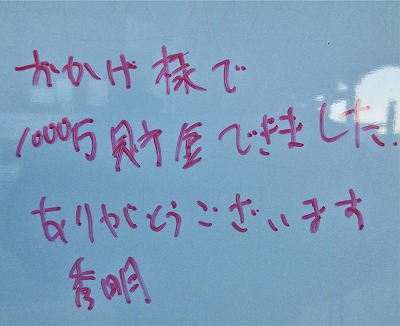 おかげ様で
1000万貯金できました.
ありがとうございます
秀明